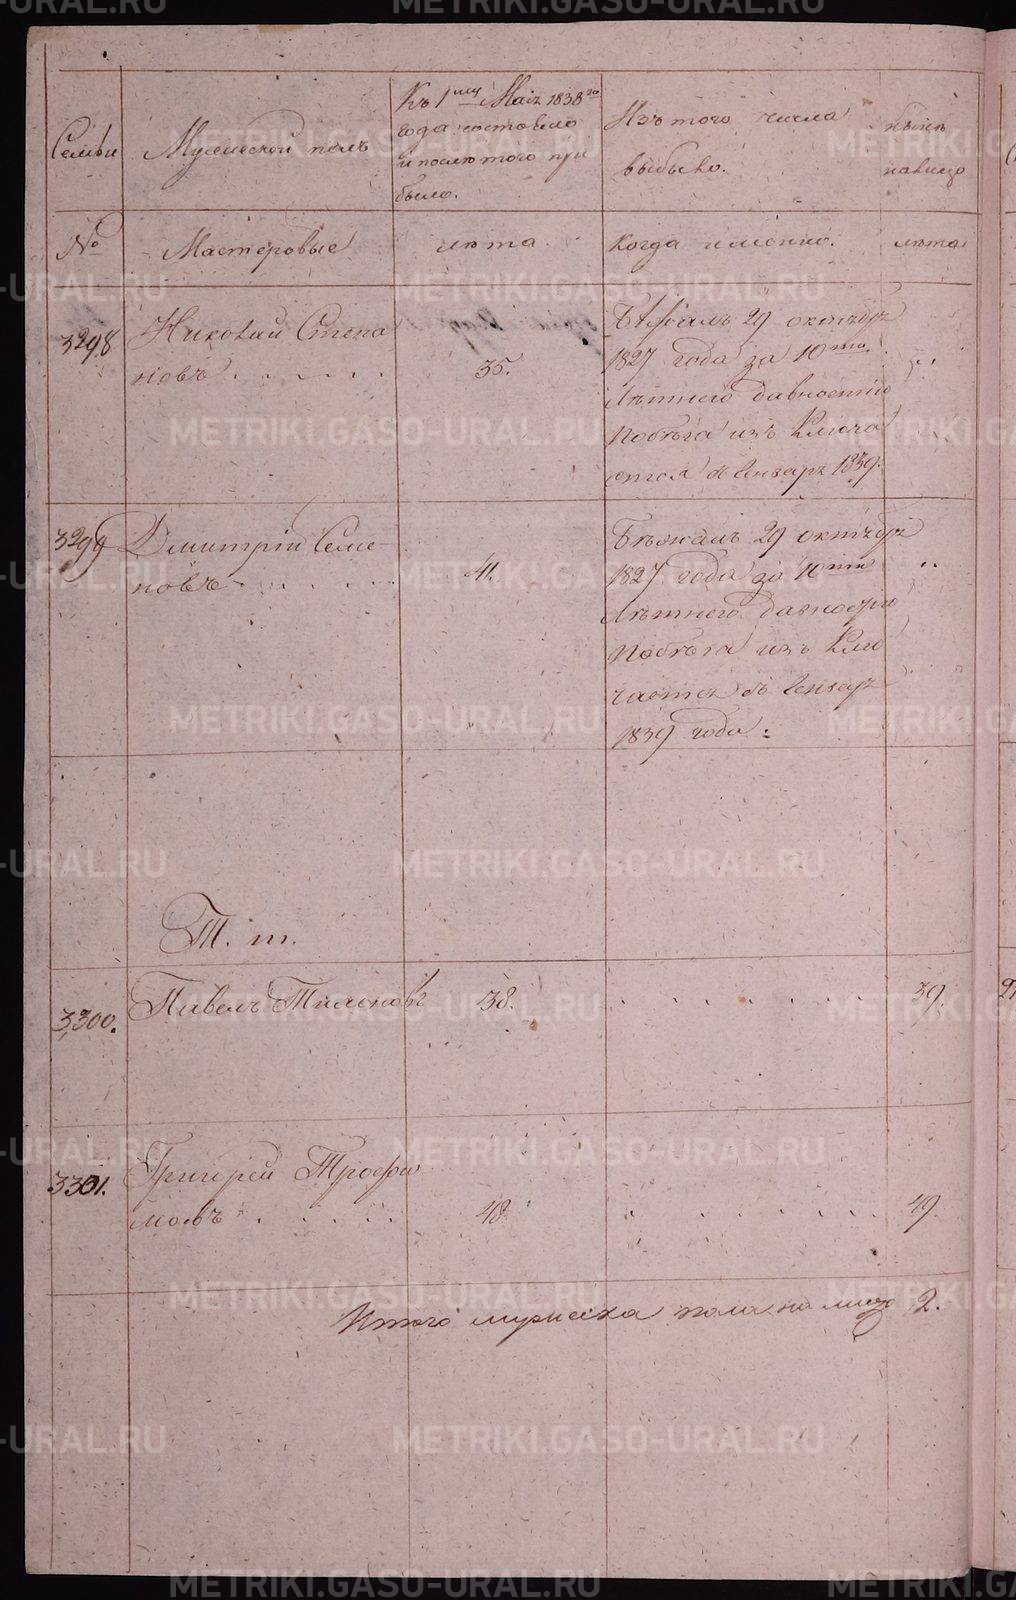 Семьи
Мужеской полъ
Къ 1му Маія 1838го
года состояло
и после того при
было.
Изъ того числа
выбыло.
ныне
налицо
№
Мастеровые
лѣта
Когда именно.
лѣта
3298
Николай Степа
новъ
35.
Бѣжалъ 29 октября
1827 года за 10ти
лѣтнего давностію
побѣга изъ ключа
ется въ Генваре 1839.
3299
Дмитрій Семе-
новъ
41.
Бѣжалъ 29 октября
1827 года за 10ти
лѣтнего давностію
побѣга изъ клю
чается въ Генваре
1839 года.
Т. т.
3300.
Павелъ
38.
39.
3301.
Григорей Трофи
мовъ
48.
49.
Итого мужеска пола на лицо 2.
METRIKI.GASO-URAL.RU